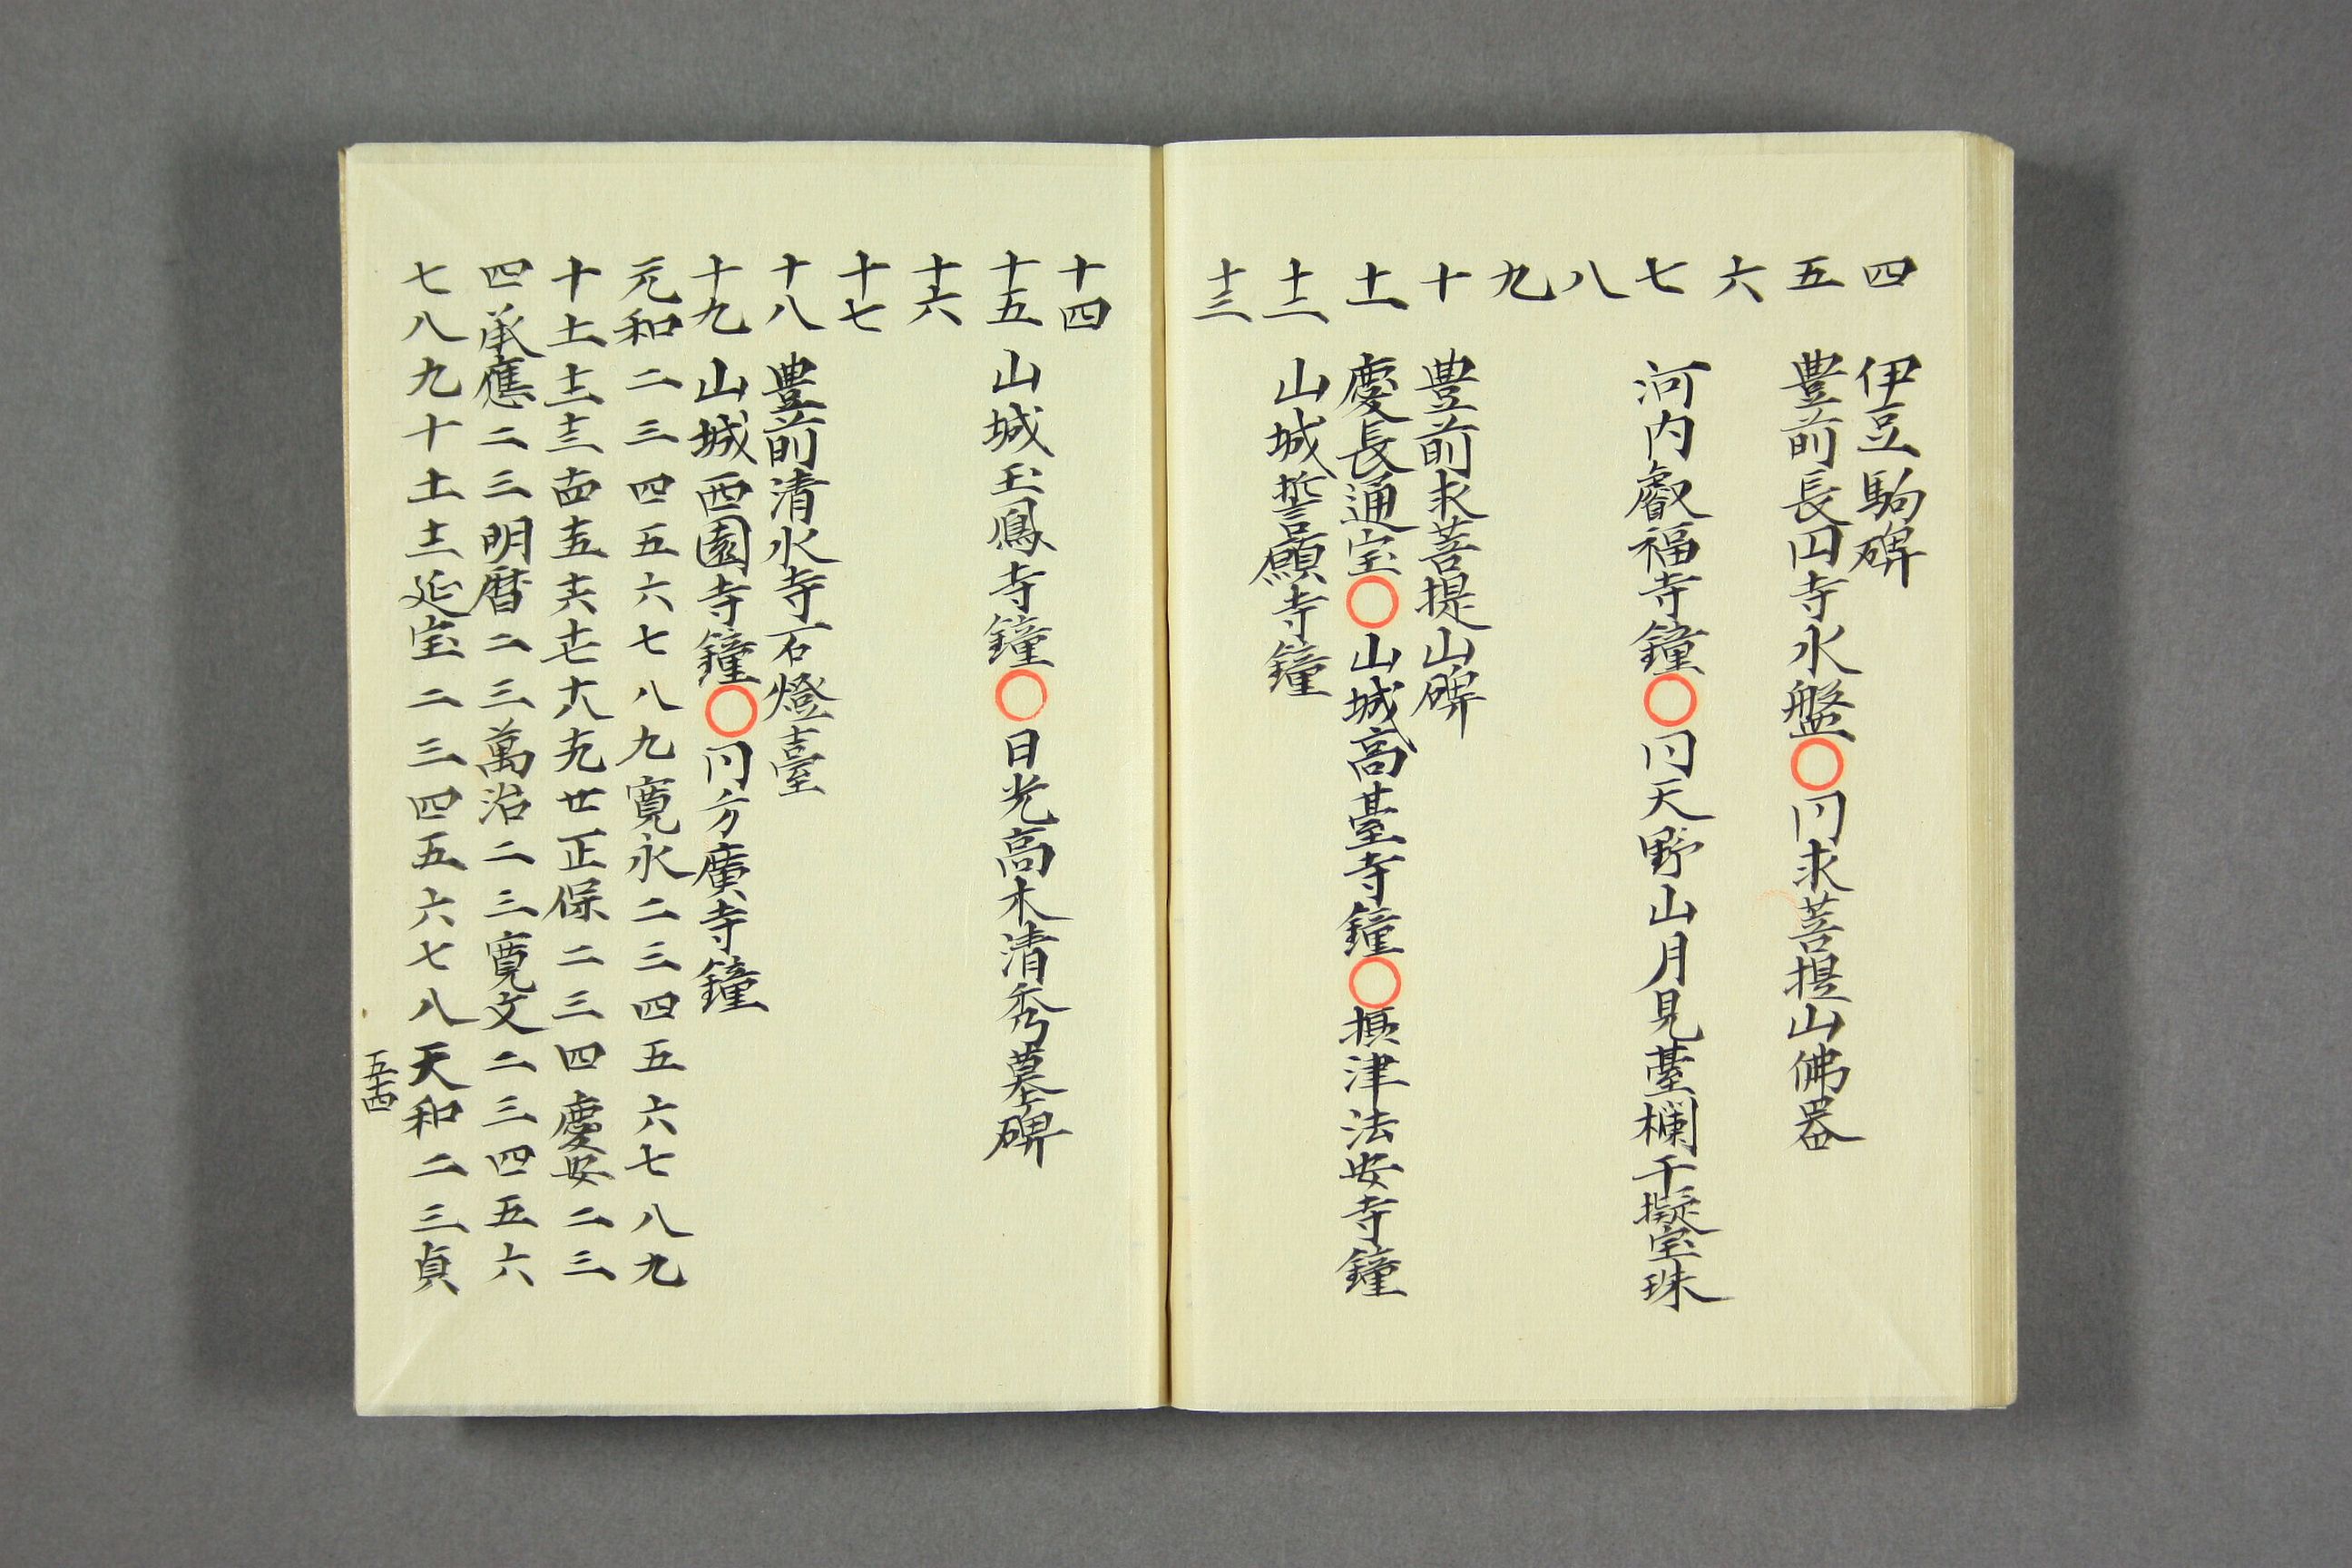 四　伊豆駒碑
五　豊前長円寺水盤○同求菩提山佛器
六
七　河内叡福寺鐘○同天野山月見臺欄干擬宝珠
八
九
十　豊前求菩提山碑
十一　慶長通宝○山城高臺寺鐘○摂津法安寺鐘
十二　山城誓願寺鐘
十三
十四
十五　山城玉鳳寺鐘○日光高木清秀墓碑
十六
十七
十八　豊前清水寺石燈臺
十九　山城西園寺鐘○同方廣寺鐘
元和二三四五六七八九寛永二三四五六七八九
十十一十二十三十四十五十六十七十八十九廿正保二三四慶安二三
四承應二三明暦二三萬治二三寛文二三四五六
七八九十十一十二延宝二三四五六七八天和二三貞
五十四